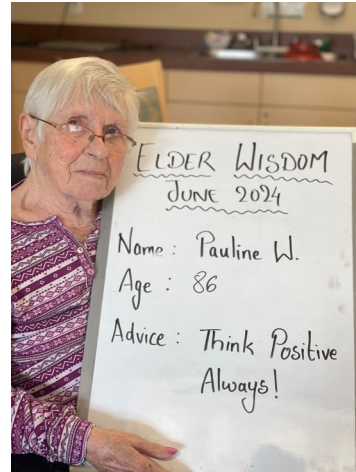 ELDER WISDOM
JUNE 2024
Name : Pauline W.
Age : 86
Advice : Think Positive
Always!